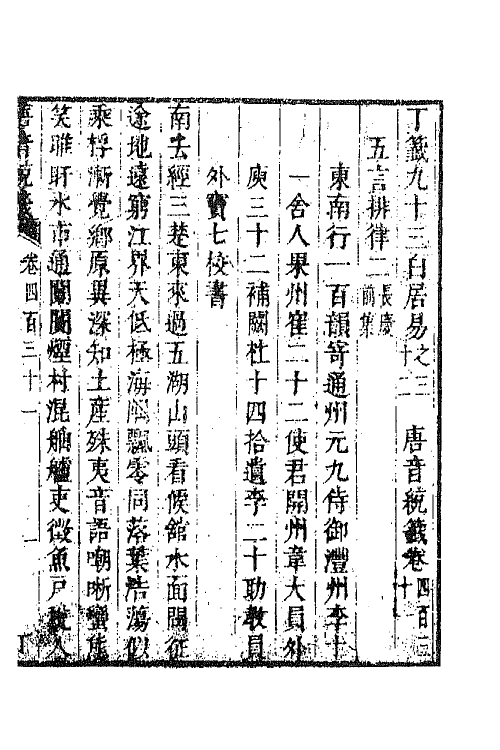 丁籤九十三白居易之三十二 唐音統籤卷四百三十一
五言排律二長慶前集
東南行一百韻寄通州元九侍御灃州李十
一舍人果州崔二十二使君開州韋大員外
庾三十二補闕杜十四拾遺李二十助教員
外竇七校書
南去經三楚東來過五湖山頭看候館水面問征
途地遠窮江界天低極海隅飄零同落葉浩蕩似
乘桴漸覺鄉原異深知土產殊夷音語嘲哳蠻態
笑睢盱水市通闤闠煙村混舳艫吏徵魚戶稅人
唐音統籤 卷四百三十一 一 丁